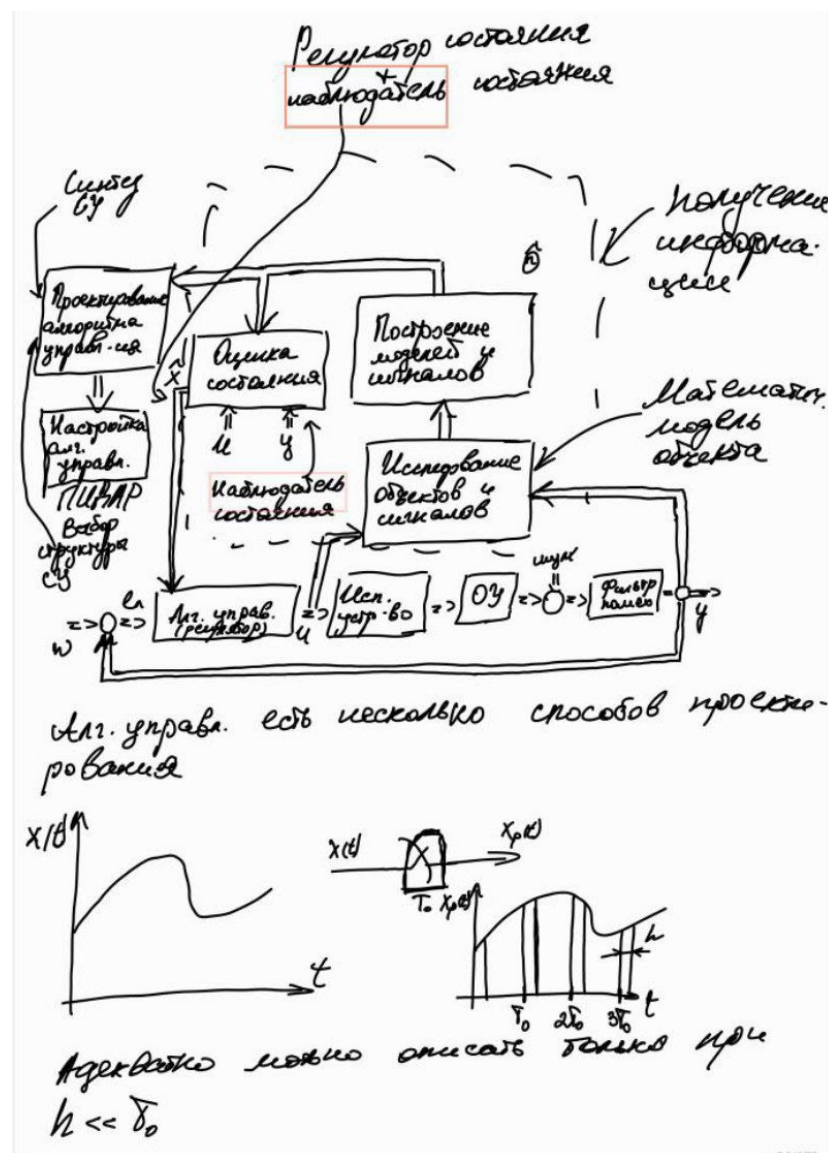 Регулятор состояния
+
наблюдатель состояния
Синтез
СУ
Получение
информа-
ции
Проектирование
алгоритма
управл-ия
Оценка
состояния
x̂
Построение
моделей и
сигналов
Математич.
модель
объекта
Настройка
алг.
управл.
u
y
Исследование
объектов и
сигналов
Наблюдатель
состояния
Выбор
структуры
СУ
шум
w
Алг. управл.
(регулятор)
u
Исп.
устр-во
ОУ
Фильтр
помех
y
Алг. управл. есть несколько способов проекти-
рования
x(t)
t
x(t)
xр(t)
T₀
xр(t)
h
T₀ 2T₀ 3T₀ t
Адекватно можно описать только при
h << T₀